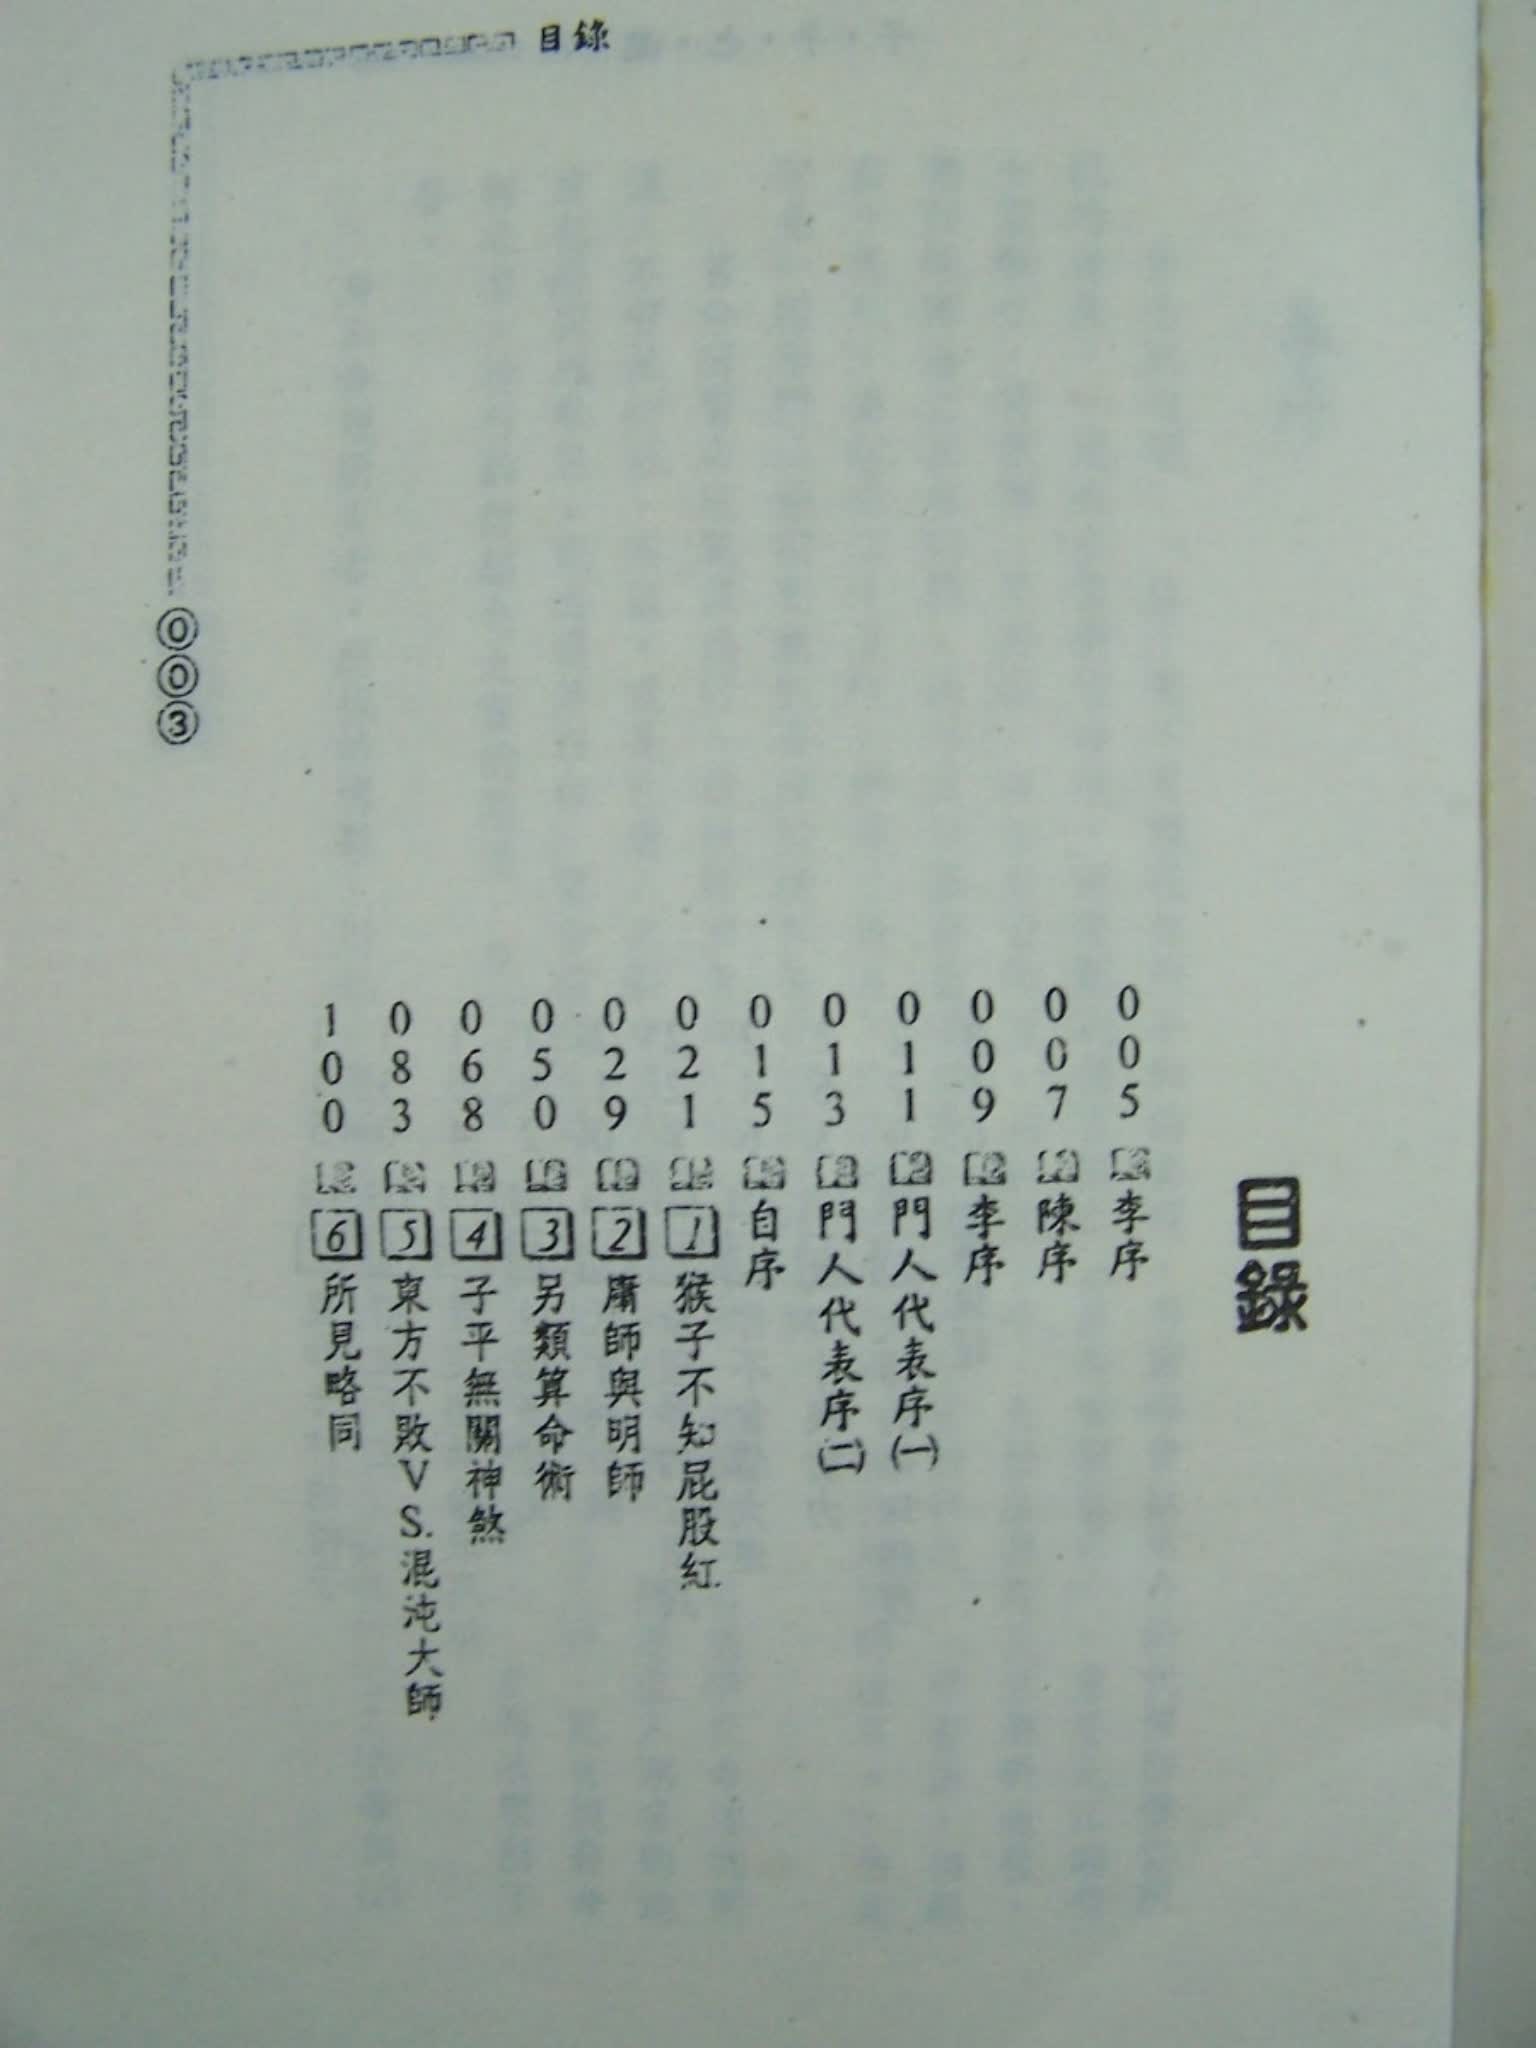 目錄
目錄
005 李序
007 陳序
009 李序
011 門人代表序(一)
013 門人代表序(二)
015 自序
021 1 猴子不知屁股紅
029 2 庸師與明師
050 3 另類算命術
068 4 子平無關神煞
083 5 東方不敗VS.混沌大師
100 6 所見略同
003